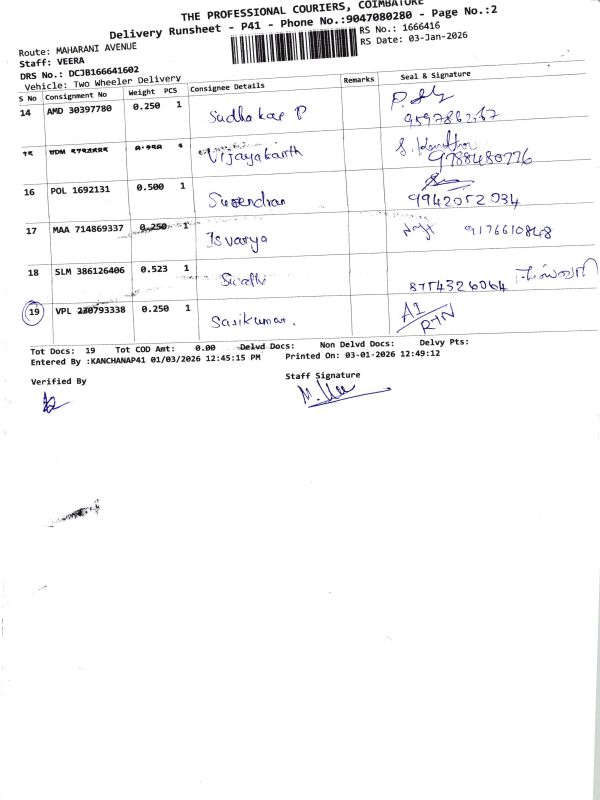 THE PROFESSIONAL COURIERS, COIMBATORE
Delivery Runsheet - P41 - Phone No.:9047080280 - Page No.:2
Route: MAHARANI AVENUE
RS No.: 1666416
Staff: VEERA
RS Date: 03-Jan-2026
DRS No.: DCJB166641602
Vehicle: Two Wheeler Delivery
S No Consignment No Weight PCS Consignee Details Remarks Seal & Signature
14 AMD 30397780 0.250 1 Sudhakar P
15 1 Vijayakanth 9788480776
16 POL 1692131 0.500 1 Surendran 9942052934
17 MAA 714869337 0.250 1 Isvarya 9176610848
18 SLM 386126406 0.523 1 8754326064
19 VPL 230793338 0.250 1 Sasikumar.
Tot Docs: 19 Tot COD Amt: 0.00 Delvd Docs: Non Delvd Docs: Delvy Pts:
Entered By :KANCHANAP41 01/03/2026 12:45:15 PM Printed On: 03-01-2026 12:49:12
Verified By
Staff Signature